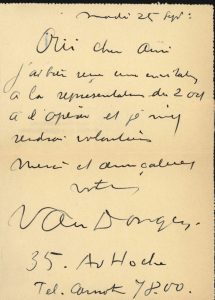 mardi 25 Sept:
Oui cher ami
j'ai bien reçu une invitation
à la représentation du 2 oct
à l'opéra et je m'y
rendrai volontiers
Merci et amicalement
votre
Van Dongen.
35. Av Hoche
Tel. Carnot 78.00.